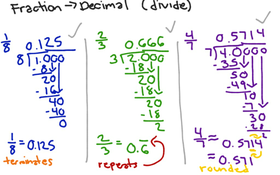 Fraction → Decimal (divide)
1/8
0.125
8 1.000
-8
20
-16
40
-40
0
1/8 = 0.125
terminates
2/3
0.666
3 2.000
-18
20
-18
20
-18
2
2/3 = 0.6
repeats
4/7
0.5714
7 4.0000
-35
50
-49
10
-7
30
-28
2
4/7 ≈ 0.5714
≈ 0.571
rounded